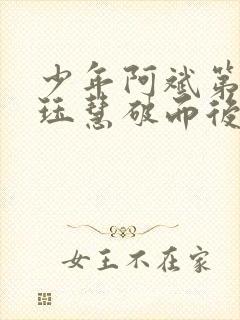 少年阿斌第
珏慧破而後
女王不在家